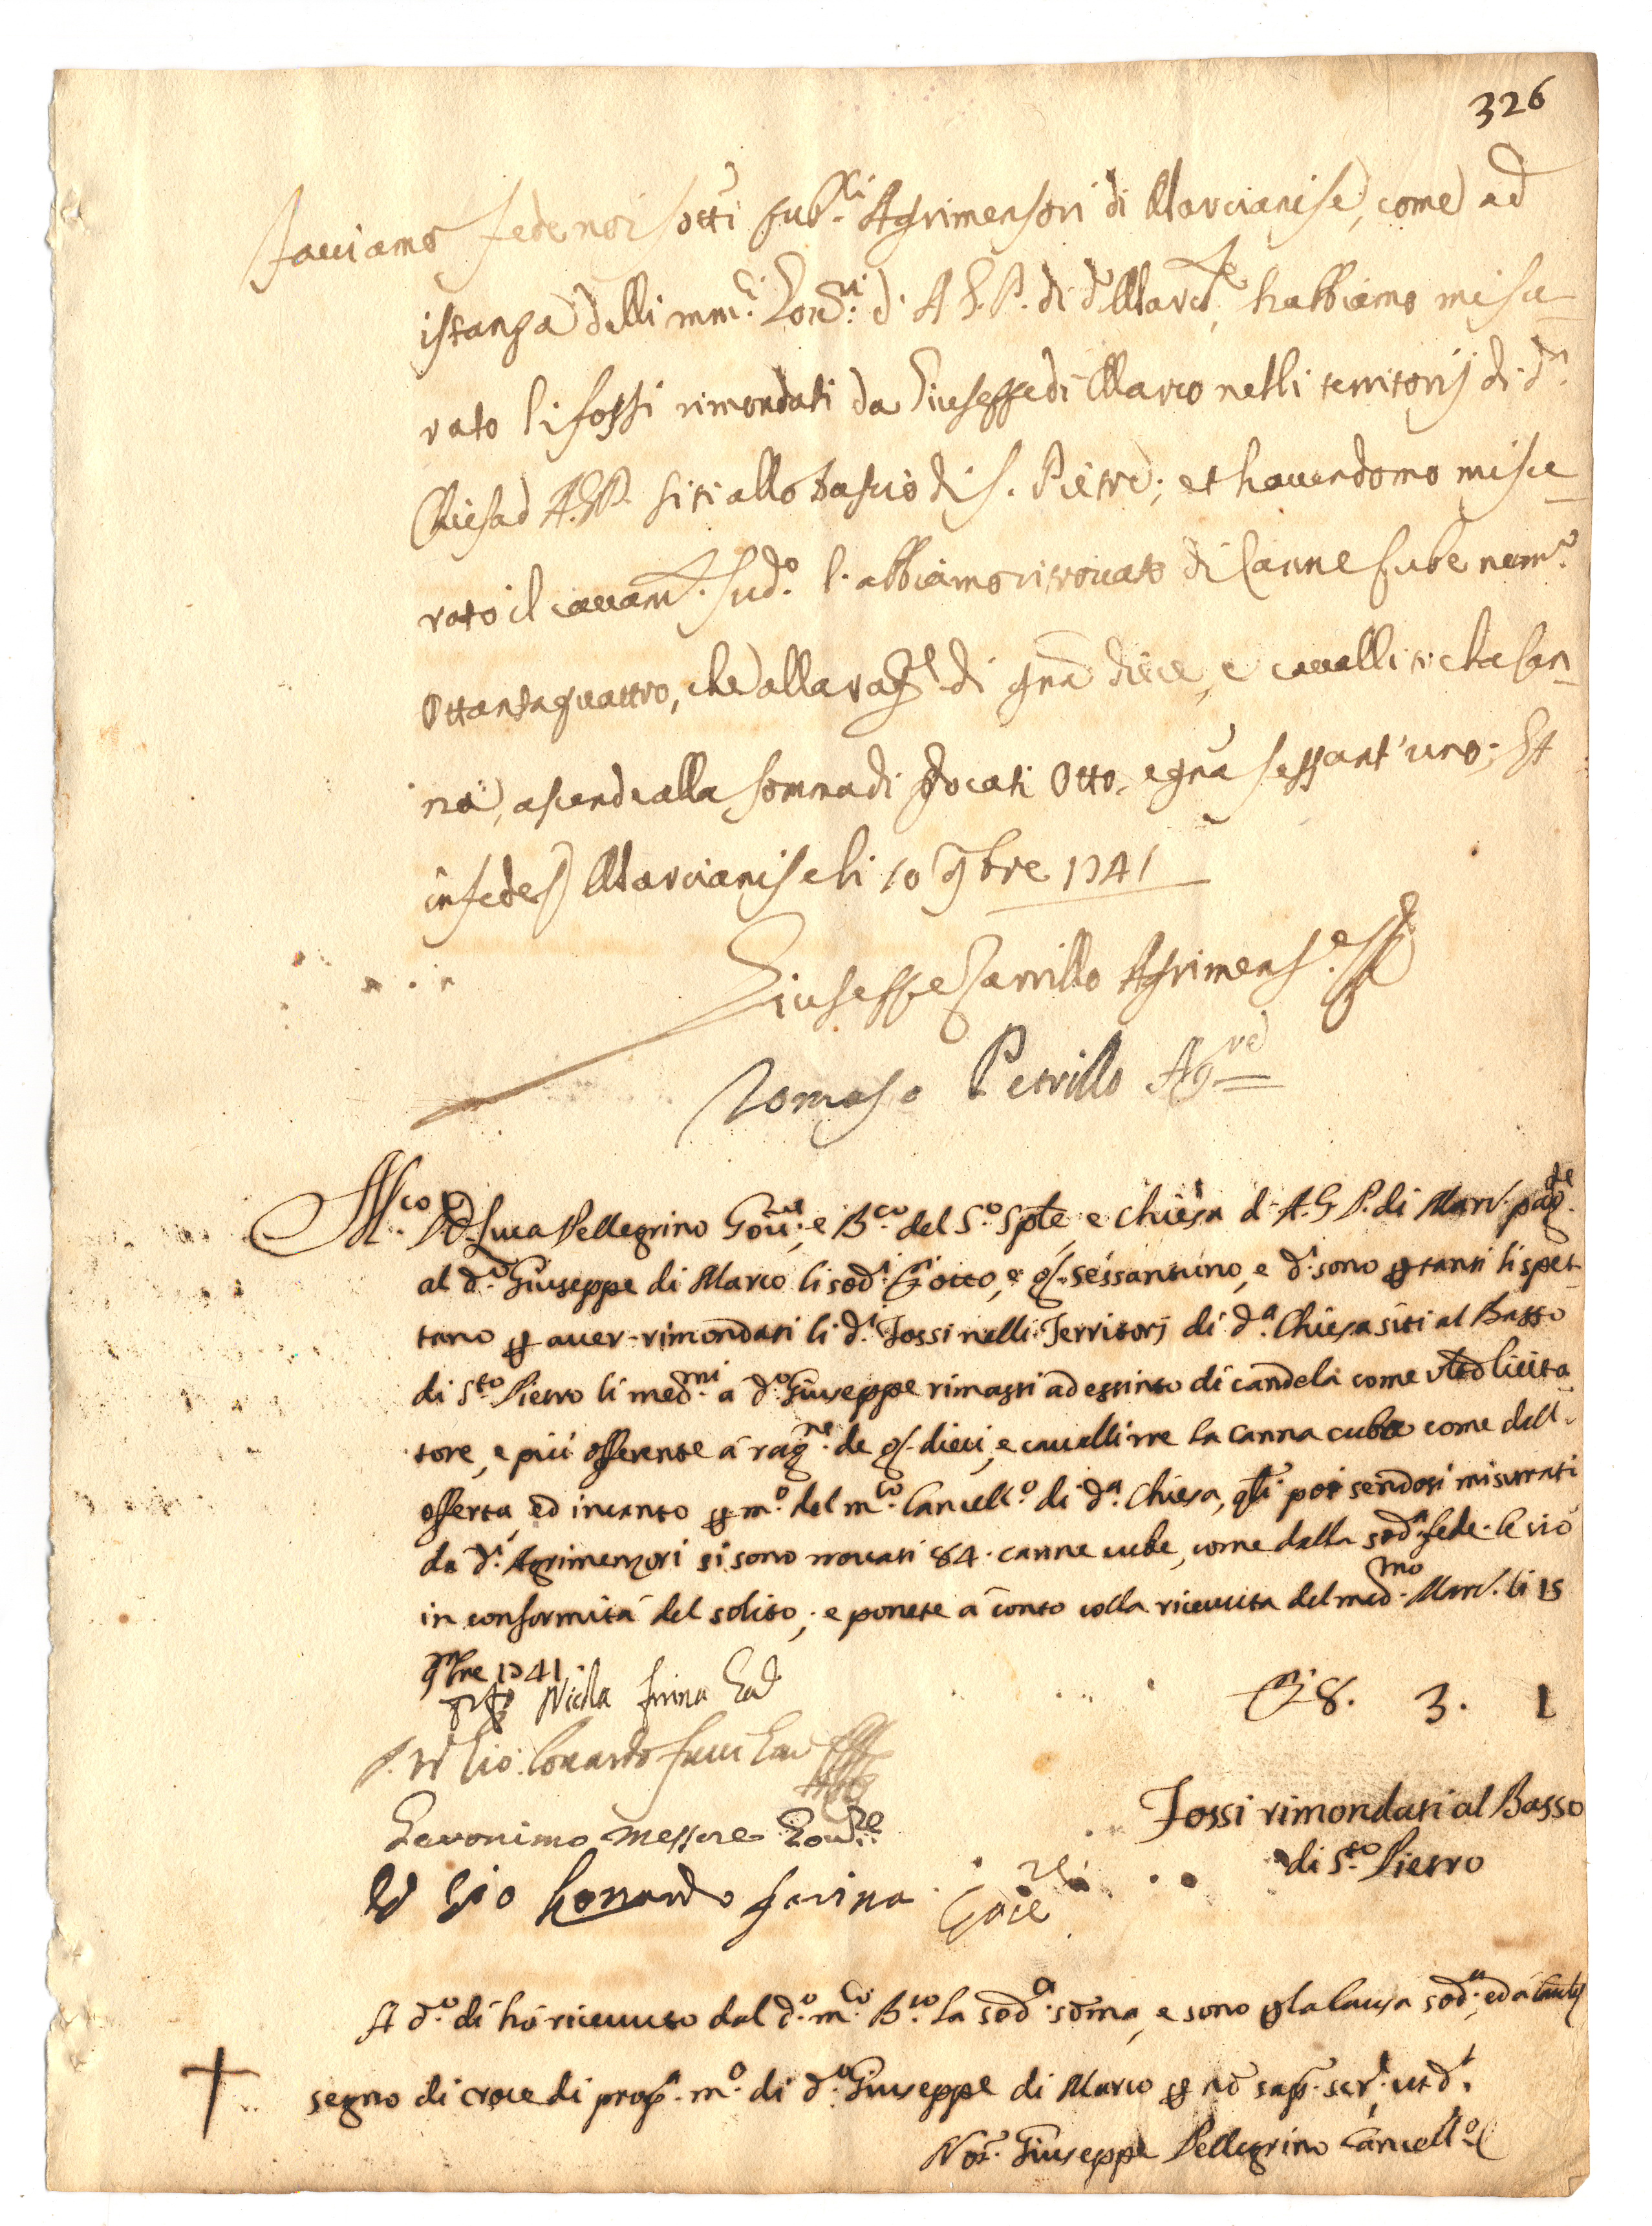 326
Facciamo fede noi sotti pub.ci Agrimensori di Marcianise, come ad
istanza delli mm.ci Gov.ri d' A.G.P. di d.a Marc.e habbiamo misu-
rato li fossi rimondati da Giuseppe di Marco nelli territorij di d.a
Chiesa d' A.G.P. siti allo Bascio di S. Pietro; et havendomo misu-
rato il cavam.to sud.o l'abbiamo ritrovato di Canne cube num.o
Ottantaquattro, che alla rag.e di gna diece, e cavalli tre la Can-
na, ascende alla somma di docati Otto, e gna sessant'uno; Et
in fede Marcianise li 10 9bre 1741
Giuseppe Carrillo Agrimens.e
Tomaso Petrillo Ag.re
M.co D. Luca Pellegrino Gov.re e B.co del S.o Sp.le e Chiesa d' A.G.P. di Marc. pag.te
al d.o Giuseppe di Marco li sod.i D.i otto, e g. sessantuno, e d.i sono p tanti li spet-
tano p aver rimondati li d.i Fossi nelli Territorj di d.a Chiesa siti al Basso
di S.to Pietro li med.mi a d.o Giuseppe rimasti ad estinto di candela come ult.o licita-
tore, e più offerente a rag.ne de g. dieci, e cavalli tre la canna cuba come dall'
offerta, ed incanto p m.o del m.co Cancell.o di d.a Chiesa, qli poi sendosi misurati
da d.i Agrimensori si sono trovati 84. canne cube, come dalla sod.a fede. e ciò
in conformità del solito; e ponete a conto colla ricevuta del med.mo Marc. li 15
9bre 1741.
Nicola Farina
D. 8. 3. 1
Gio: Lonardo
Geronimo Messore Gov.re
Fossi rimondati al Basso
di S.to Pietro
D Gio Lonardo Farina
A d.o dì hò ricevuto dal d.o m.co B.co la sod.a soma, e sono p la causa sod.a, ed a cautela
+ segno di croce di prop.a m.o di d.o Giuseppe di Marco p no sap. scr. ut d.t
Not. Giuseppe Pellegrino Cancell.o